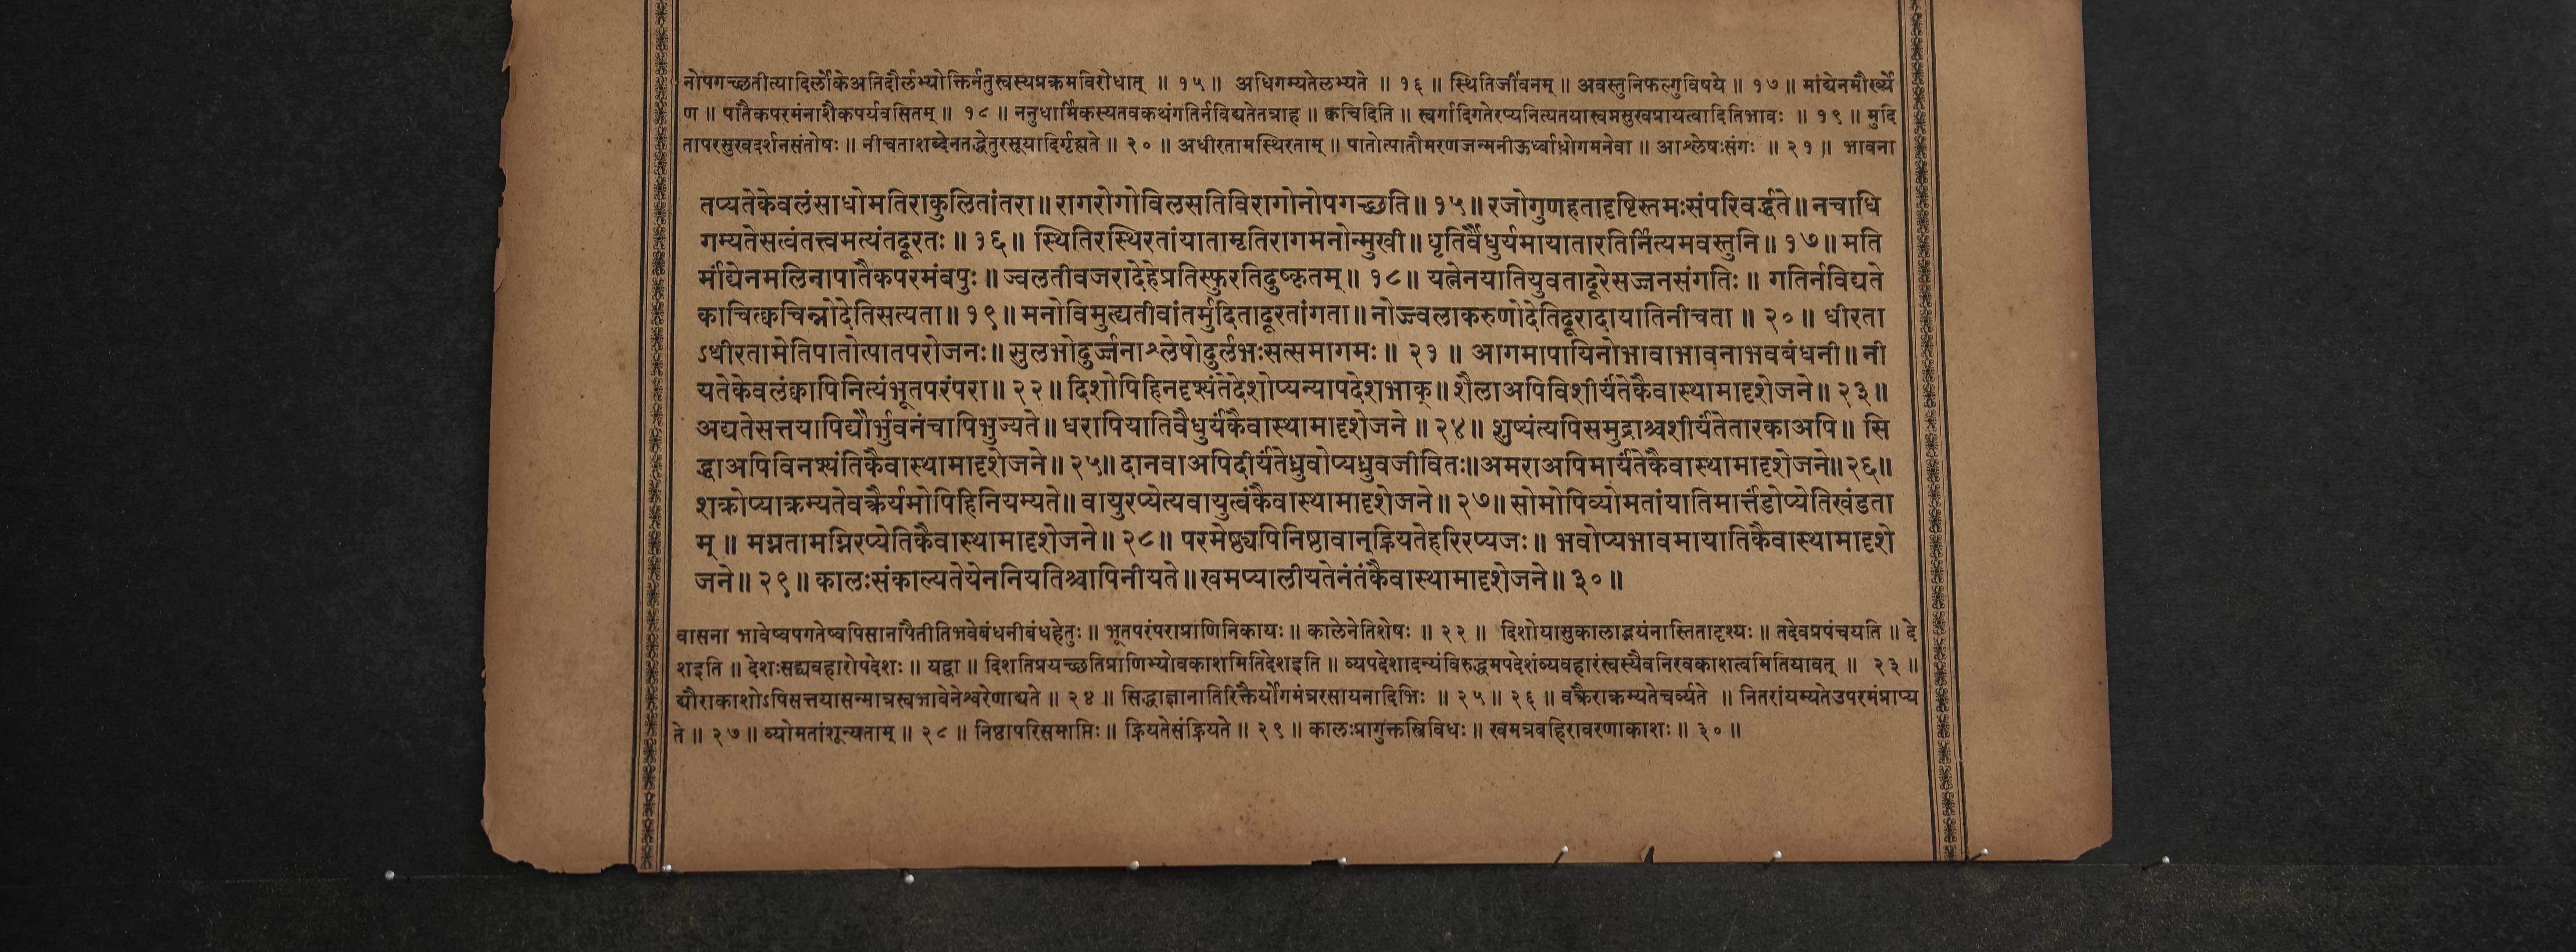 नोपगच्छतीत्यादिर्लोकेअतिदौर्लभ्योक्तिर्नतुस्वस्यप्रक्रमविरोधात् ॥ १५ ॥ अधिगम्यतेलभ्यते ॥ १६ ॥ स्थितिर्जीवनम् ॥ अवस्तुनिफल्गुविषये ॥ १७ ॥ मांद्येनमौर्ख्ये
ण ॥ पातैकपरमंनाशैकपर्यवसितम् ॥ १८ ॥ ननुधार्मिकस्यतवकथंगतिर्नविद्यतेतत्राह ॥ क्वचिदिति ॥ स्वर्गादिगतेरप्यनित्यतयास्वमसुखप्रायत्वादितिभावः ॥ १९ ॥ मुदि
तापरसुखदर्शनसंतोषः ॥ नीचताशब्देनतद्धेतुरसूयादिर्गृह्यते ॥ २० ॥ अधीरतामस्थिरताम् ॥ पातोत्पातौमरणजन्मनीऊर्ध्वाधोगमनेवा ॥ आश्लेषःसंगः ॥ २१ ॥ भावना
तप्यतेकेवलंसाधोमतिराकुलितांतरा ॥ रागरोगोविलसतिविरागोनोपगच्छति ॥ १५ ॥ रजोगुणहतादृष्टिस्तमःसंपरिवर्द्धते ॥ नचाधि
गम्यतेसत्वंतत्त्वमत्यंतदूरतः ॥ १६ ॥ स्थितिरस्थिरतांयातामृतिरागमनोन्मुखी ॥ धृतिर्वैधुर्यमायातारतिर्नित्यमवस्तुनि ॥ १७ ॥ मति
र्मांद्येनमलिनापातैकपरमंवपुः ॥ ज्वलतीवजरादेहेप्रतिस्फुरतिदुष्कृतम् ॥ १८ ॥ यत्नेनयातियुवतादूरेसज्जनसंगतिः ॥ गतिर्नविद्यते
काचित्क्वचिन्नोदेतिसत्यता ॥ १९ ॥ मनोविमुह्यतीवांतर्मुदितादूरतांगता ॥ नोज्ज्वलाकरुणोदेतिदूरादायातिनीचता ॥ २० ॥ धीरता
ऽधीरतामेतिपातोत्पातपरोजनः ॥ सुलभोदुर्ज्जनाश्लेषोदुर्लभःसत्समागमः ॥ २१ ॥ आगमापायिनोभावाभावनाभवबंधनी ॥ नी
यतेकेवलंक्वापिनित्यंभूतपरंपरा ॥ २२ ॥ दिशोपिहिनदृश्यंतेदेशोप्यन्यापदेशभाक् ॥ शैलाअपिविशीर्यंतेकैवास्थामादृशेजने ॥ २३ ॥
अद्यतेसत्तयापिद्यौर्भुवनंचापिभुज्यते ॥ धरापियातिवैधुर्यंकैवास्थामादृशेजने ॥ २४ ॥ शुष्यंत्यपिसमुद्राश्चशीर्यंतेतारकाअपि ॥ सि
द्धाअपिविनश्यंतिकैवास्थामादृशेजने ॥ २५ ॥ दानवाअपिदीर्यंतेध्रुवोप्यध्रुवजीवितः ॥ अमराअपिमार्यंतेकैवास्थामादृशेजने ॥ २६ ॥
शक्रोप्याक्रम्यतेवक्रैर्यमोपिहिनियम्यते ॥ वायुरप्येत्यवायुत्वंकैवास्थामादृशेजने ॥ २७ ॥ सोमोपिव्योमतांयातिमार्त्तंडोप्येतिखंडता
म् ॥ मग्नतामग्निरप्येतिकैवास्थामादृशेजने ॥ २८ ॥ परमेष्ठ्यपिनिष्ठावान्ह्रियतेहरिरप्यजः ॥ भवोप्यभावमायातिकैवास्थामादृशे
जने ॥ २९ ॥ कालःसंकाल्यतेयेननियतिश्चापिनीयते ॥ खमप्यालीयतेनंतंकैवास्थामादृशेजने ॥ ३० ॥
वासना भावेष्वपगतेष्वपिसानापैतीतिभवेबंधनीबंधहेतुः ॥ भूतपरंपराप्राणिनिकायः ॥ कालेनेतिशेषः ॥ २२ ॥ दिशोयासुकालाद्भयंनास्तितादृश्यः ॥ तदेवप्रपंचयति ॥ दे
शइति ॥ देशःसद्यवहारोपदेशः ॥ यद्वा ॥ दिशतिप्रयच्छतिप्राणिभ्योवकाशमितिदेशइति ॥ व्यपदेशादन्यंविरुद्धमपदेशंव्यवहारंस्वस्यैवनिरवकाशत्वमितियावत् ॥ २३ ॥
द्यौराकाशोऽपिसत्तयासन्मात्रस्वभावेनेश्वरेणाद्यते ॥ २४ ॥ सिद्धाज्ञानातिरिक्तैर्योगमंत्ररसायनादिभिः ॥ २५ ॥ २६ ॥ वक्रैराक्रम्यतेचर्व्यते ॥ नितरांयम्यतेउपरमंप्राप्य
ते ॥ २७ ॥ व्योमतांशून्यताम् ॥ २८ ॥ निष्ठापरिसमाप्तिः ॥ ह्रियतेसंह्रियते ॥ २९ ॥ कालःप्रागुक्तस्त्रिविधः ॥ खमत्रबहिरावरणाकाशः ॥ ३० ॥